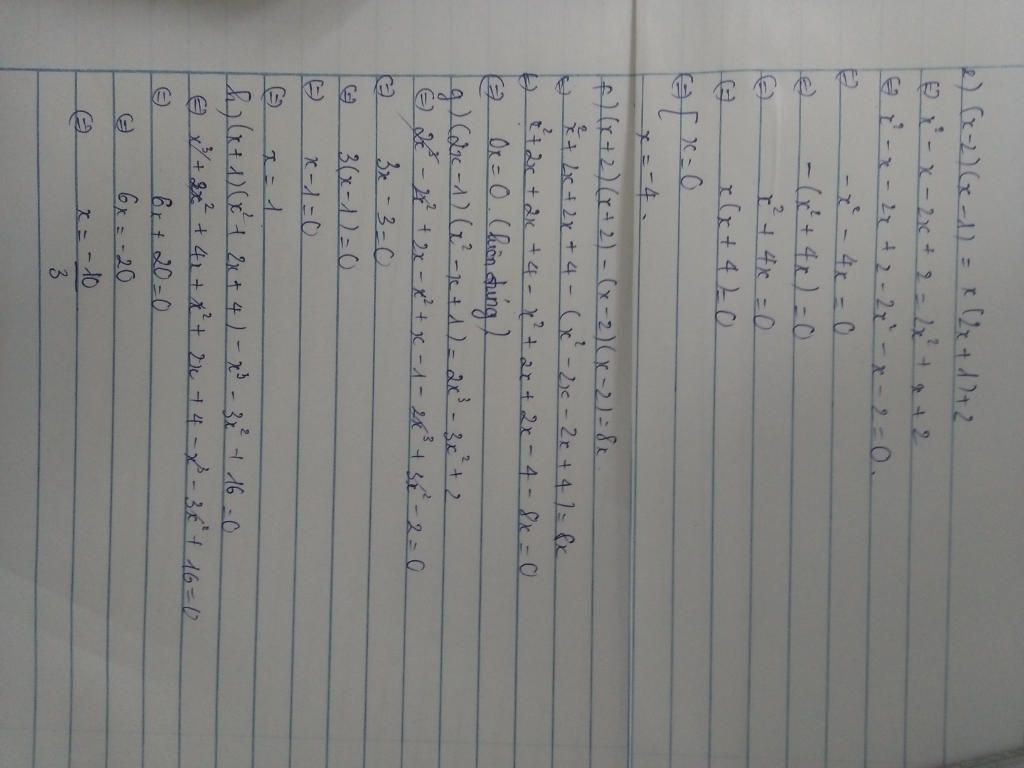 e) (x-2)(x-1) = x(2x+1)+2
(=) x² - x - 2x + 2 = 2x² + x + 2
(=) x² - x - 2x + 2 - 2x² - x - 2 = 0.
(=) -x² - 4x = 0
(=) -(x² + 4x) = 0
(=) x² + 4x = 0
(=) x(x+4) = 0
(=) [ x = 0
x = -4.
f) (x+2)(x+2) - (x-2)(x-2) = 8x.
(=) x² + 2x + 2x + 4 - (x² - 2x - 2x + 4) = 8x
(=) x² + 2x + 2x + 4 - x² + 2x + 2x - 4 - 8x = 0
(=) 0x = 0 (luôn đúng)
g) (2x-1)(x² - x + 1) = 2x³ - 3x² + 2
(=) 2x³ - 2x² + 2x - x² + x - 1 - 2x³ + 3x² - 2 = 0
(=) 3x - 3 = 0
(=) 3(x-1) = 0
(=) x - 1 = 0
(=) x = 1
h) (x+1)(x² + 2x + 4) - x³ - 3x² + 16 = 0
(=) x³ + 2x² + 4x + x² + 2x + 4 - x³ - 3x² + 16 = 0
(=) 6x + 20 = 0
(=) 6x = -20
(=) x = -10/3